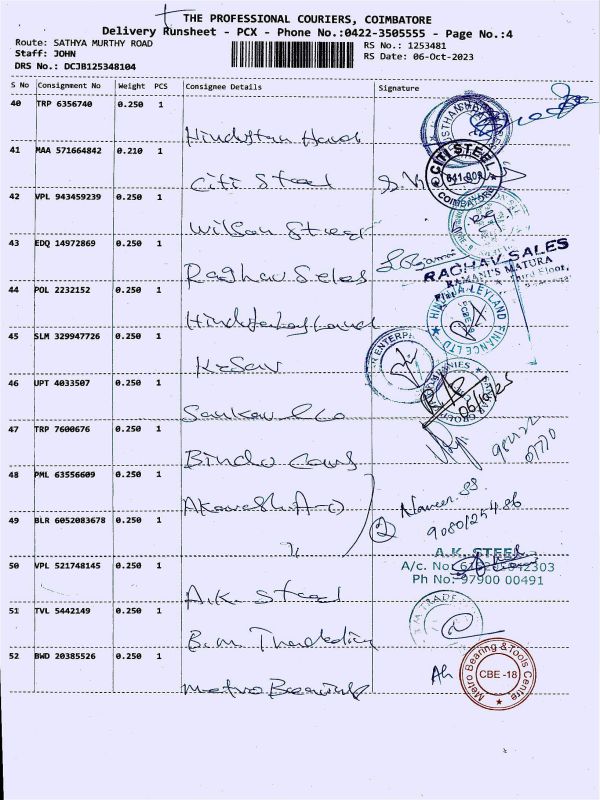 THE PROFESSIONAL COURIERS, COIMBATORE
Delivery Runsheet - PCX - Phone No.:0422-3505555 - Page No.:4
Route: SATHYA MURTHY ROAD
RS No.: 1253481
Staff: JOHN
RS Date: 06-Oct-2023
DRS No.: DCJB125348104
S No Consignment No Weight PCS Consignee Details Signature
40 TRP 6356740 0.250 1
Hindustan
41 MAA 571664842 0.210 1
Citi Steel
CITI STEEL
641 002
COIMBATORE
42 VPL 943459239 0.250 1
Wilson Street
43 EDQ 14972869 0.250 1
Raghav Sales
RAGHAV SALES
RAMANI'S MATURA
Floor,
44 POL 2232152 0.250 1
LEYLAND FINANCE LTD
45 SLM 329947726 0.250 1
Kesav
ENTERPR
46 UPT 4033507 0.250 1
Sankar & Co
06/10/23
47 TRP 7600676 0.250 1
Bindo Cons
48 PML 63556609 0.250 1
49 BLR 6052083678 0.250 1
"
2
50 VPL 521748145 0.250 1
A.K. Steel
A.K. STEEL
A/c. No.
Ph No: 97900 00491
51 TVL 5442149 0.250 1
B.M. Tradding
TRADE
52 BWD 20385526 0.250 1
Metro Bearing
Metro Bearing & Tools Centre
CBE -18